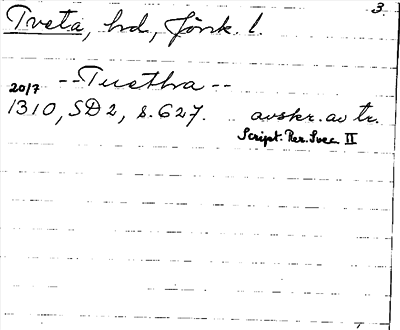 3.
Tveta, hd, Jönk. l.
--Tuetha--
20/7
1310, SD 2, s. 627. avskr. av tr.
Script. Rer. Svec. II